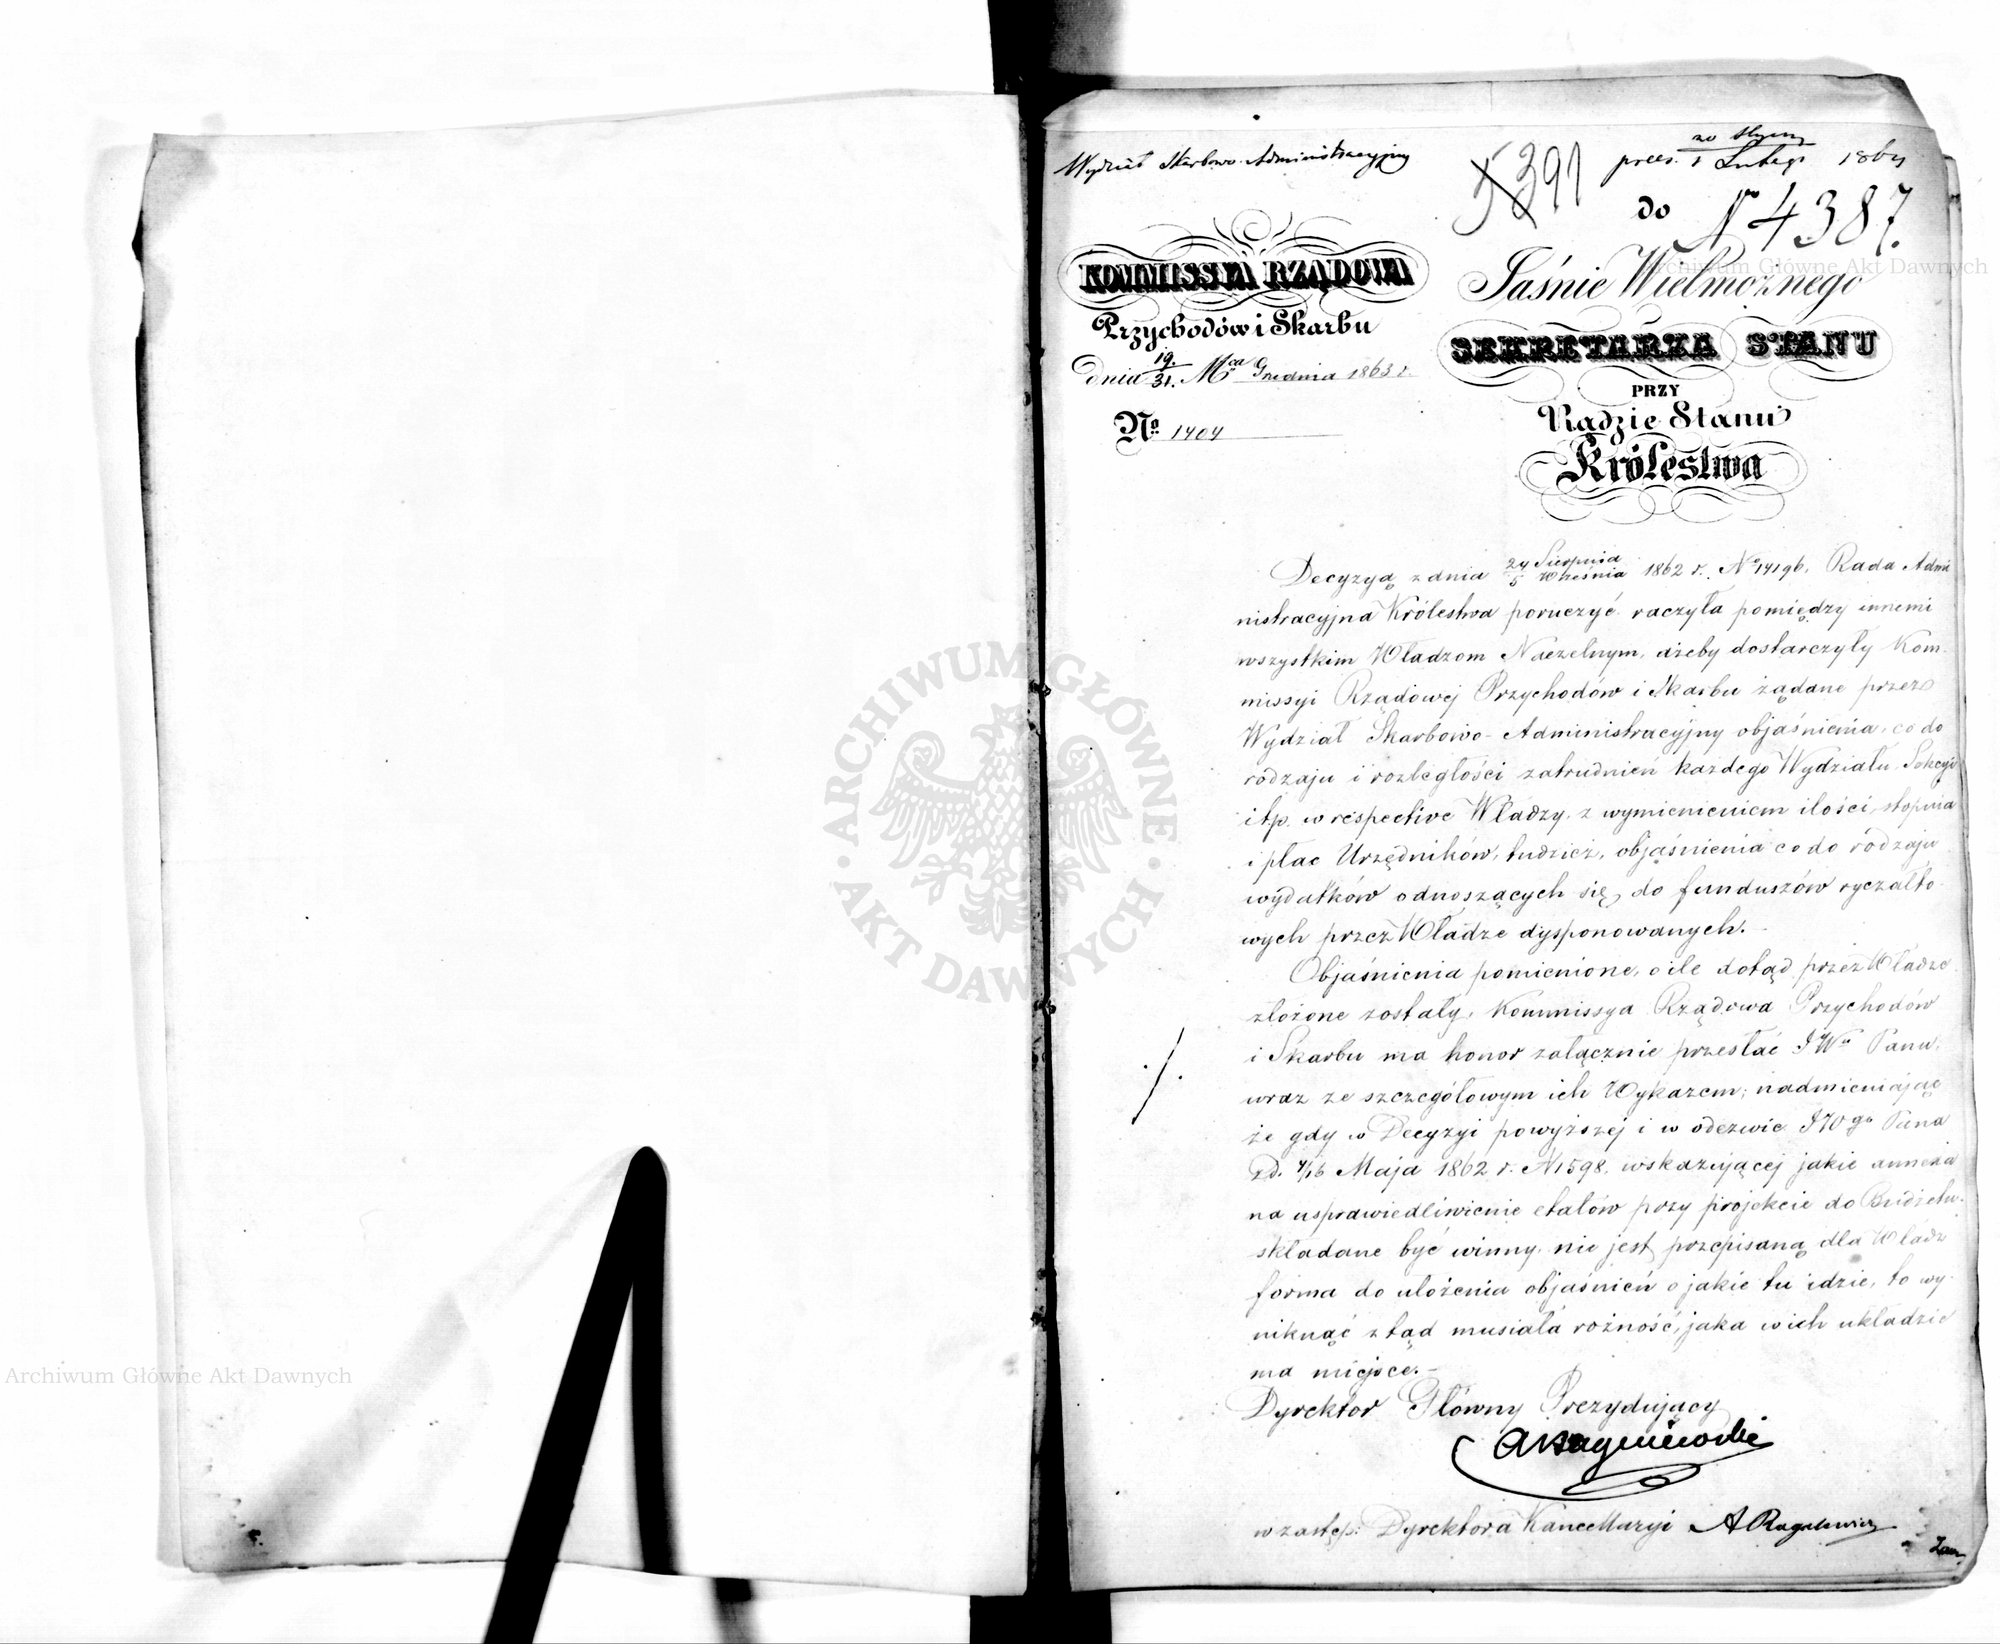 Wydział Skarbowo-Administracyjny
5391
prez. 20 Stycz. / 1 Lutego 1864
do
№ 4387.
KOMMISSYA RZĄDOWA
Przychodów i Skarbu
dnia 19./31. Mca Grudnia 1863 r.
№ 1404
Jaśnie Wielmożnego
SEKRETARZA STANU
PRZY
Radzie Stanu
Królestwa
Decyzyą z dnia 24 Sierpnia / 5 Września 1862 r. No 14196, Rada Admi
nistracyjna Królestwa poruczyć raczyła pomiędzy innemi
wszystkim Władzom Naczelnym, ażeby dostarczyły Kom-
missyi Rządowej Przychodów i Skarbu żądane przez
Wydział Skarbowo-Administracyjny objaśnienia, co do
rodzaju i rozległości zatrudnień każdego Wydziału, Sekcyi
itp. w respective Władzy, z wymienieniem ilości, stopnia
i płac Urzędników, tudzież, objaśnienia co do rodzaju
wydatków odnoszących się do funduszów ryczałto-
wych przez Władze dysponowanych.
Objaśnienia pomienione, o ile dotąd przez Władze
złożone zostały, Kommissya Rządowa Przychodów
i Skarbu ma honor załącznie przesłać JWu Panu,
wraz ze szczegółowym ich Wykazem; nadmieniając
że gdy w Decyzyi powyższej i w odezwie JWgo Pana
z d. 4/16 Maja 1862 r. N 1598, wskazującej jakie annexa
na usprawiedliwienie etatów przy projekcie do Budżetu
składane być winny, nie jest przepisaną dla Władz
forma do ułożenia objaśnień o jakie tu idzie, to wy-
niknąć ztąd musiała rożność, jaka w ich układzie
ma miejsce.
Dyrektor Główny Prezydujący
w zastęp: Dyrektora Kancellaryi A Rogalewicz
ARCHIWUM GŁÓWNE AKT DAWNYCH
Archiwum Główne Akt Dawnych
Archiwum Główne Akt Dawnych